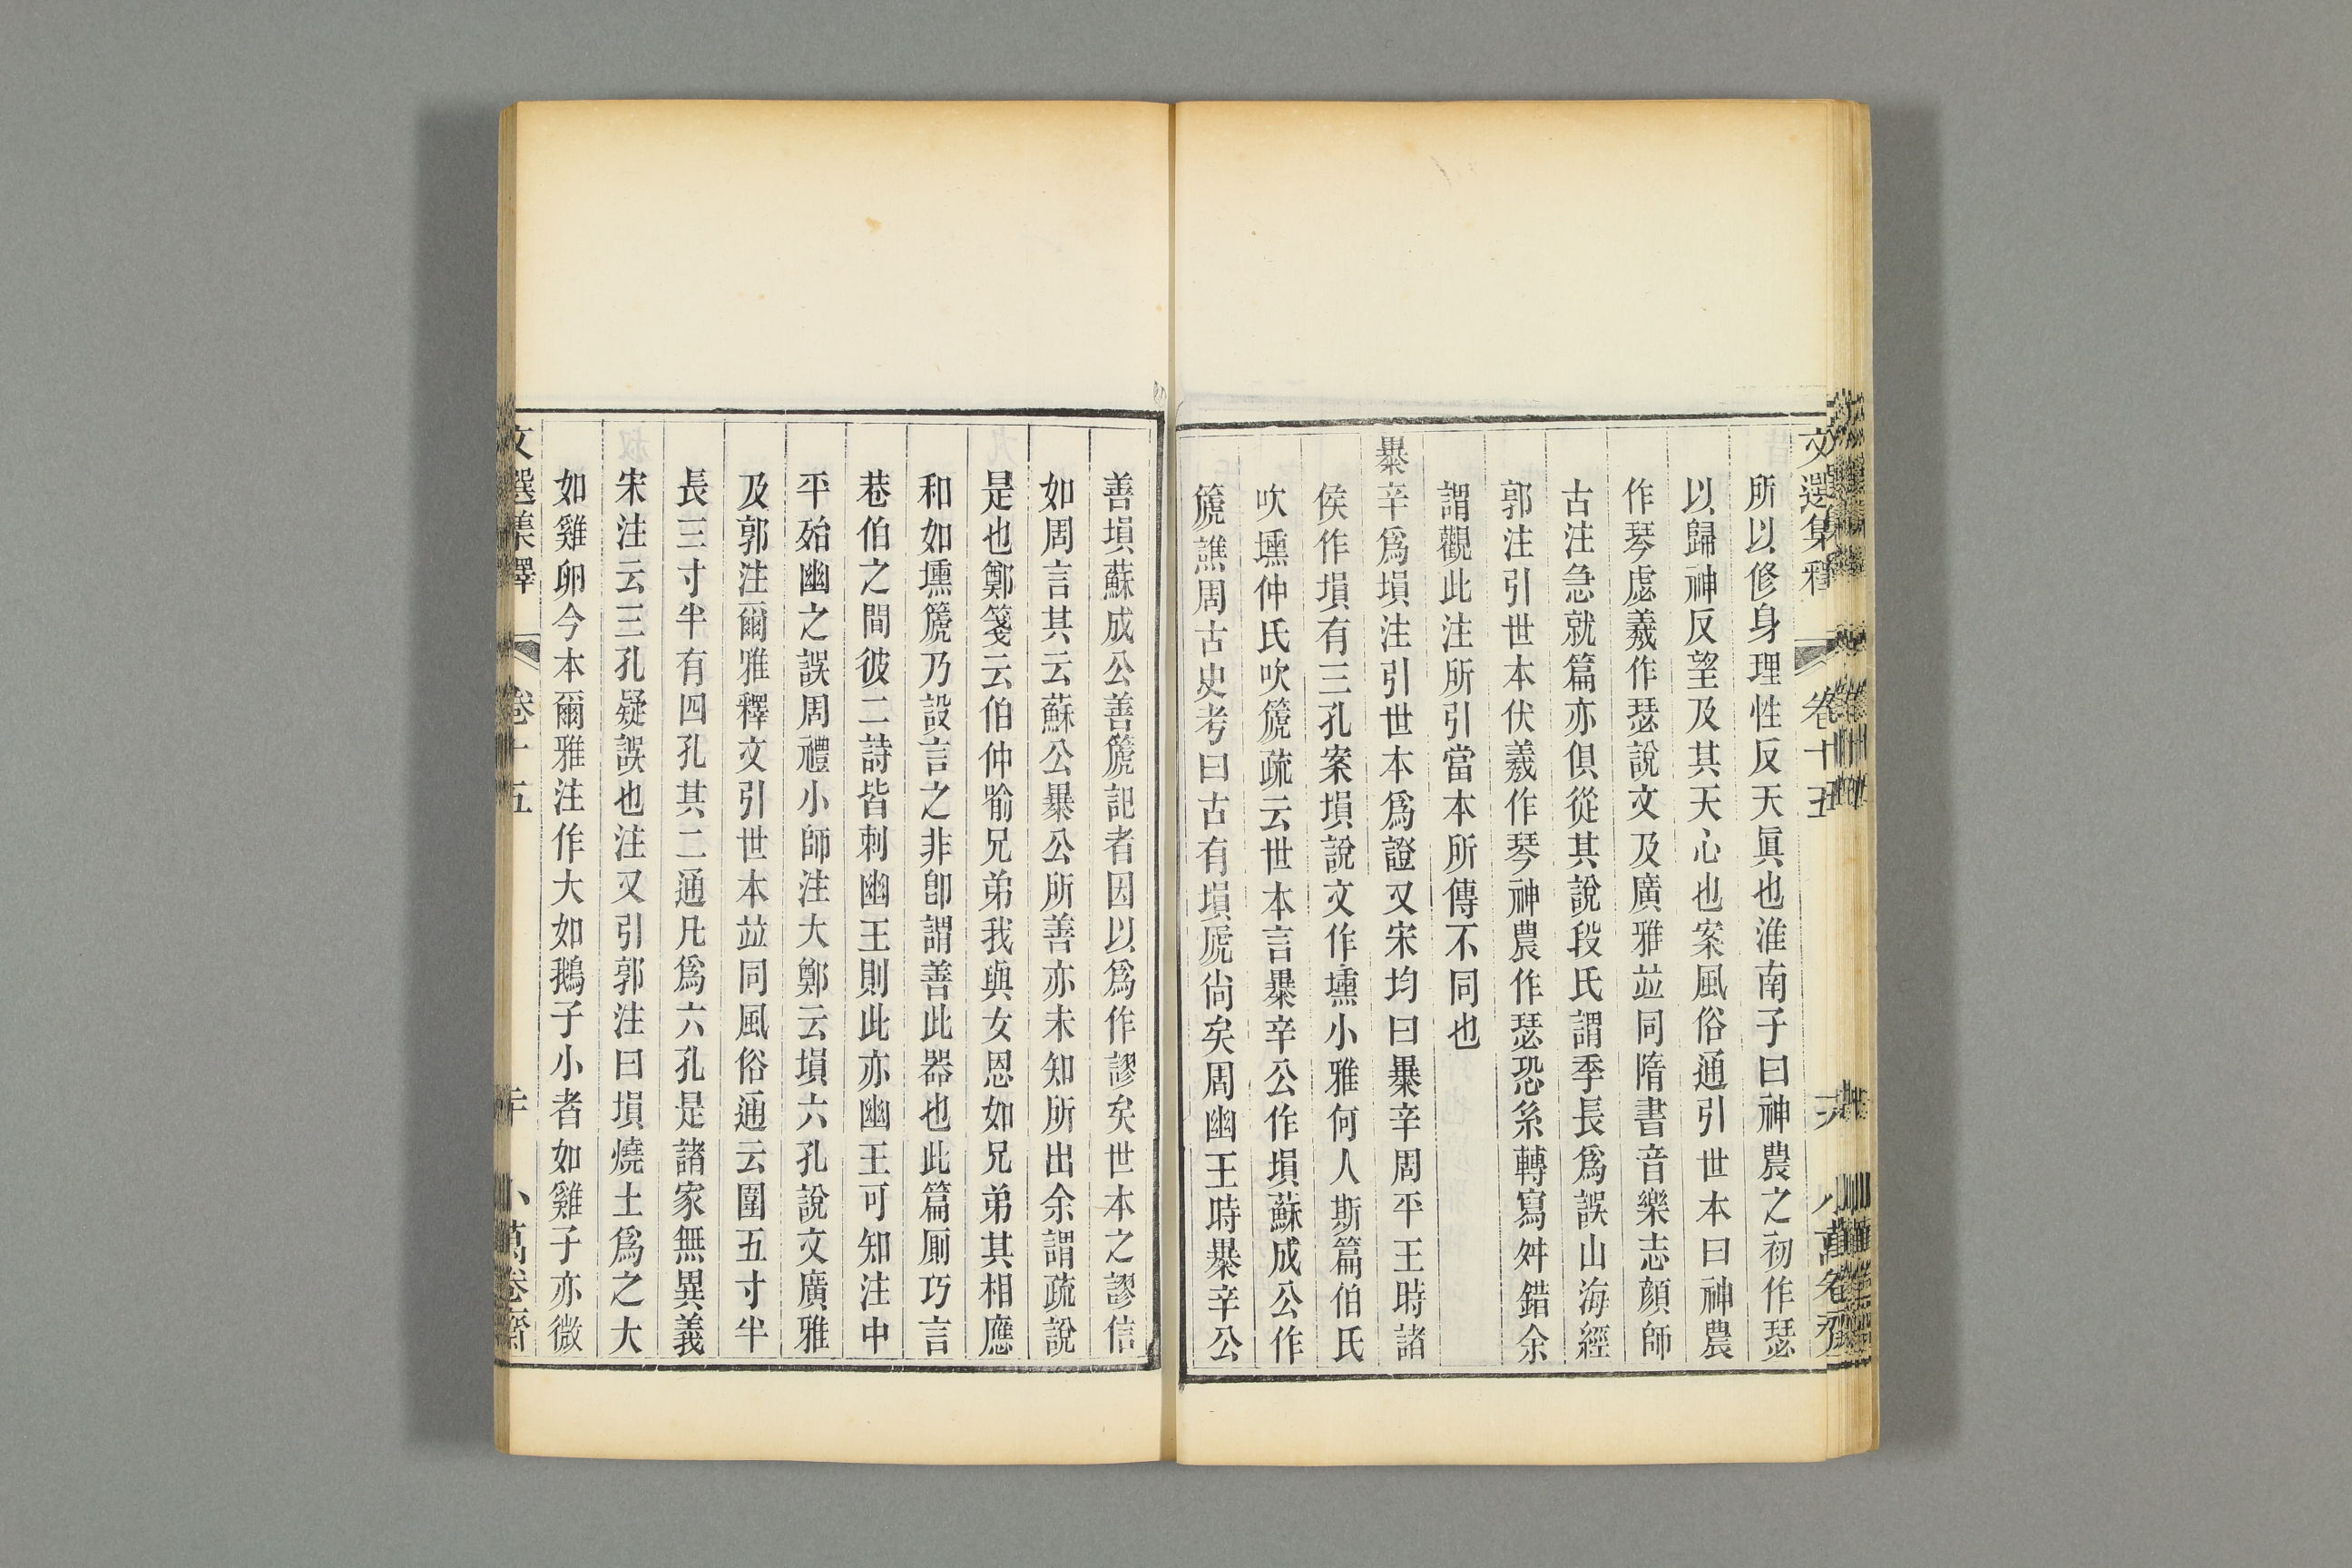 文選集釋 卷十五
所以修身理性反天眞也淮南子曰神農之初作瑟
以歸神反望及其天心也案風俗通引世本曰神農
作琴虙羲作瑟說文及廣雅竝同隋書音樂志顔師
古注急就篇亦俱從其說段氏謂季長爲誤山海經
郭注引世本伏羲作琴神農作瑟恐系轉寫舛錯余
謂觀此注所引當本所傳不同也
暴辛爲塤注引世本爲證又宋均曰暴辛周平王時諸
侯作塤有三孔案塤說文作壎小雅何人斯篇伯氏
吹壎仲氏吹篪疏云世本言暴辛公作塤蘇成公作
篪譙周古史考曰古有塤篪尙矣周幽王時暴辛公
善塤蘇成公善篪記者因以爲作謬矣世本之謬信
如周言其云蘇公暴公所善亦未知所出余謂疏說
是也鄭箋云伯仲喻兄弟我與女恩如兄弟其相應
和如壎篪乃設言之非卽謂善此器也此篇厠巧言
巷伯之間彼二詩皆刺幽王則此亦幽王可知注中
平殆幽之誤周禮小師注大鄭云塤六孔說文廣雅
及郭注爾雅釋文引世本竝同風俗通云圍五寸半
長三寸半有四孔其二通凡爲六孔是諸家無異義
宋注云三孔疑誤也注又引郭注曰塤燒土爲之大
如雞卵今本爾雅注作大如鵝子小者如雞子亦微
文選集釋 卷十五 小萬卷齋